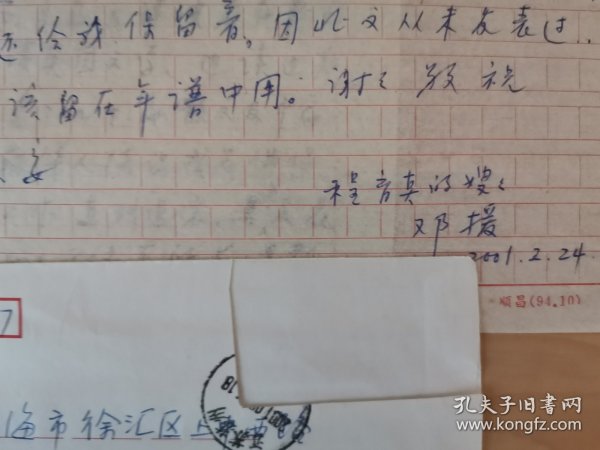 还给我保留着。因此文从未发表过.
该留在年谱中用。谢谢 敬祝
安
程育真的嫂嫂
邓援
2001.2.24.
顺昌(94.10)
7
海市徐汇区上
孔夫子旧书网
www.kongfz.com